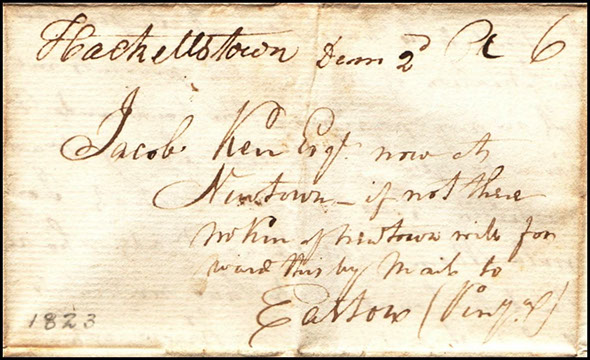 Hackettstown Decm 2d Pd 6
Jacob Kerr Esqr. now at
Newtown – if not there
of Newtown will for
ward this by Mail to
Easton (
1823